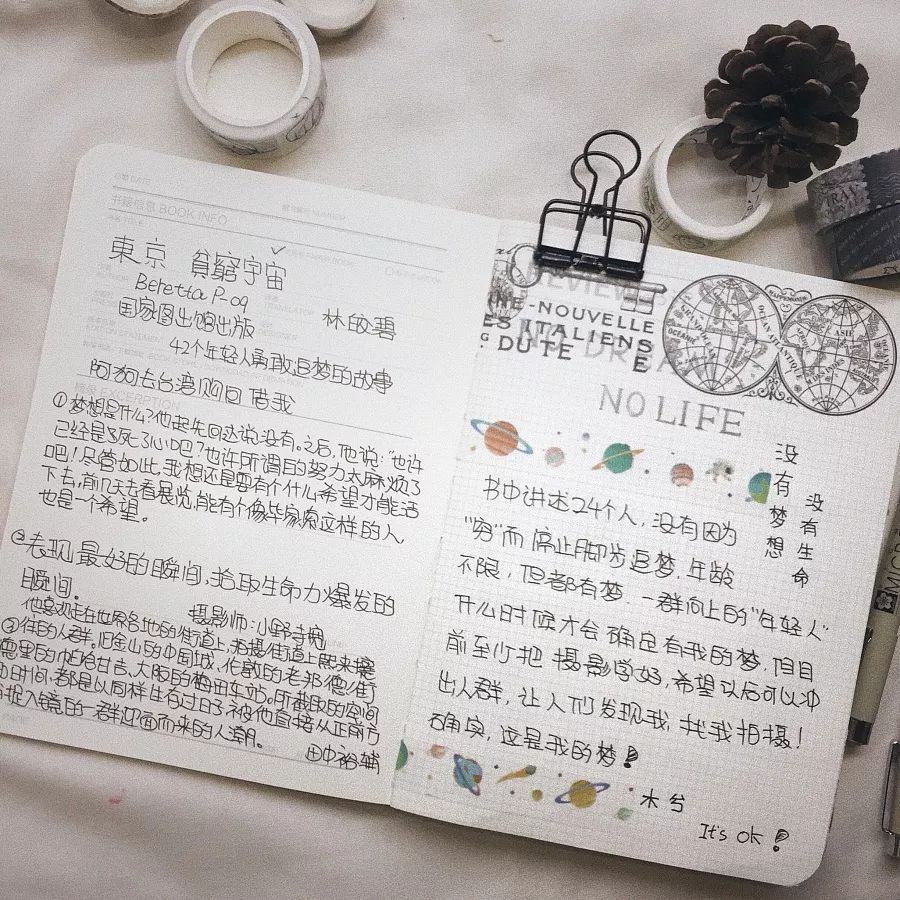 书籍信息 BOOK INFO
東京 貧窮宇宙
Beretta P-09
国家图出馆出版
林皎碧
42个年轻人勇敢追梦的故事
阿狗去台湾购回 借我
①梦想是什么?他起先回达说没有。之后,他说:“也许
已经是了死了心吧?也许所谓的努力太麻烦了
吧!尽管如此,我想还是要有个什么希望才能活
下去,前几天去看展览,能有个像毕家索这样的人
也是一个希望。
②表现最好的瞬间,拾取生命力爆发的
瞬间。
摄影师:小野寺亮
他喜欢走在世界各地的街道上,拍摄街道上熙来攘
③往的人群。旧金山的中国城、伦敦的老邦德街
德里的帕哈甘吉、大阪的梅田车站。所截取的空间
时间,都是以同样生有过日子、被他直接从正前方
捉入镜的一群迎面而来的人潮。
田中裕辅
REVIEW
NE-NOUVELLE
ES ITALIENS
DUTE
NO DREAM
NO LIFE
ASIE
没有梦想
没有生命
书中讲述24个人,没有因为
“穷”而停止脚步追梦,年龄
不限,但都有梦.一群向上的“年轻人”
什么时候才会确定有我的梦,但目
前至少把摄影学好,希望以后可以冲
出人群,让人们发现我,找我拍摄!
确实,这是我的梦!
木兮
It's ok!